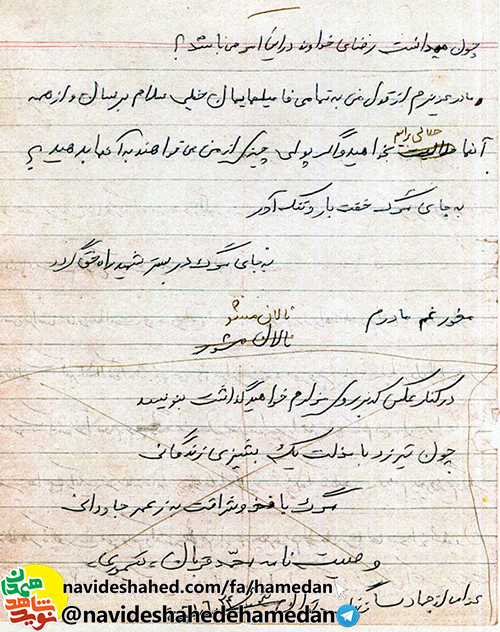 چون میدانست رضای خداوند در اینکار می باشد؟
مادر عزیزم از قول من به تمامی فامیلهایمان خیلی سلام برسان و از همه
آنها حلالی برایم بخواهید و اگر پولی چیزی از من می خواهند به آنها بدهید
به جای مرگ خفت بار و ننگ آور
به جای مرگ در بستر شهید راه حق گردد
مخور غم مادرم نالان مشو
نالان مشو
در کنار عکس که بر روی مزارم خواهید گذاشت بنویسید
چون نیرزد با مذلت یک پشیزی زندگانی
مرگ با فخر و شرافت به ز عمر جاودانی
وصیت نامه
navideshahed.com/fa/hamedan
@navideshahedehamedan
نوید شاهد همدان